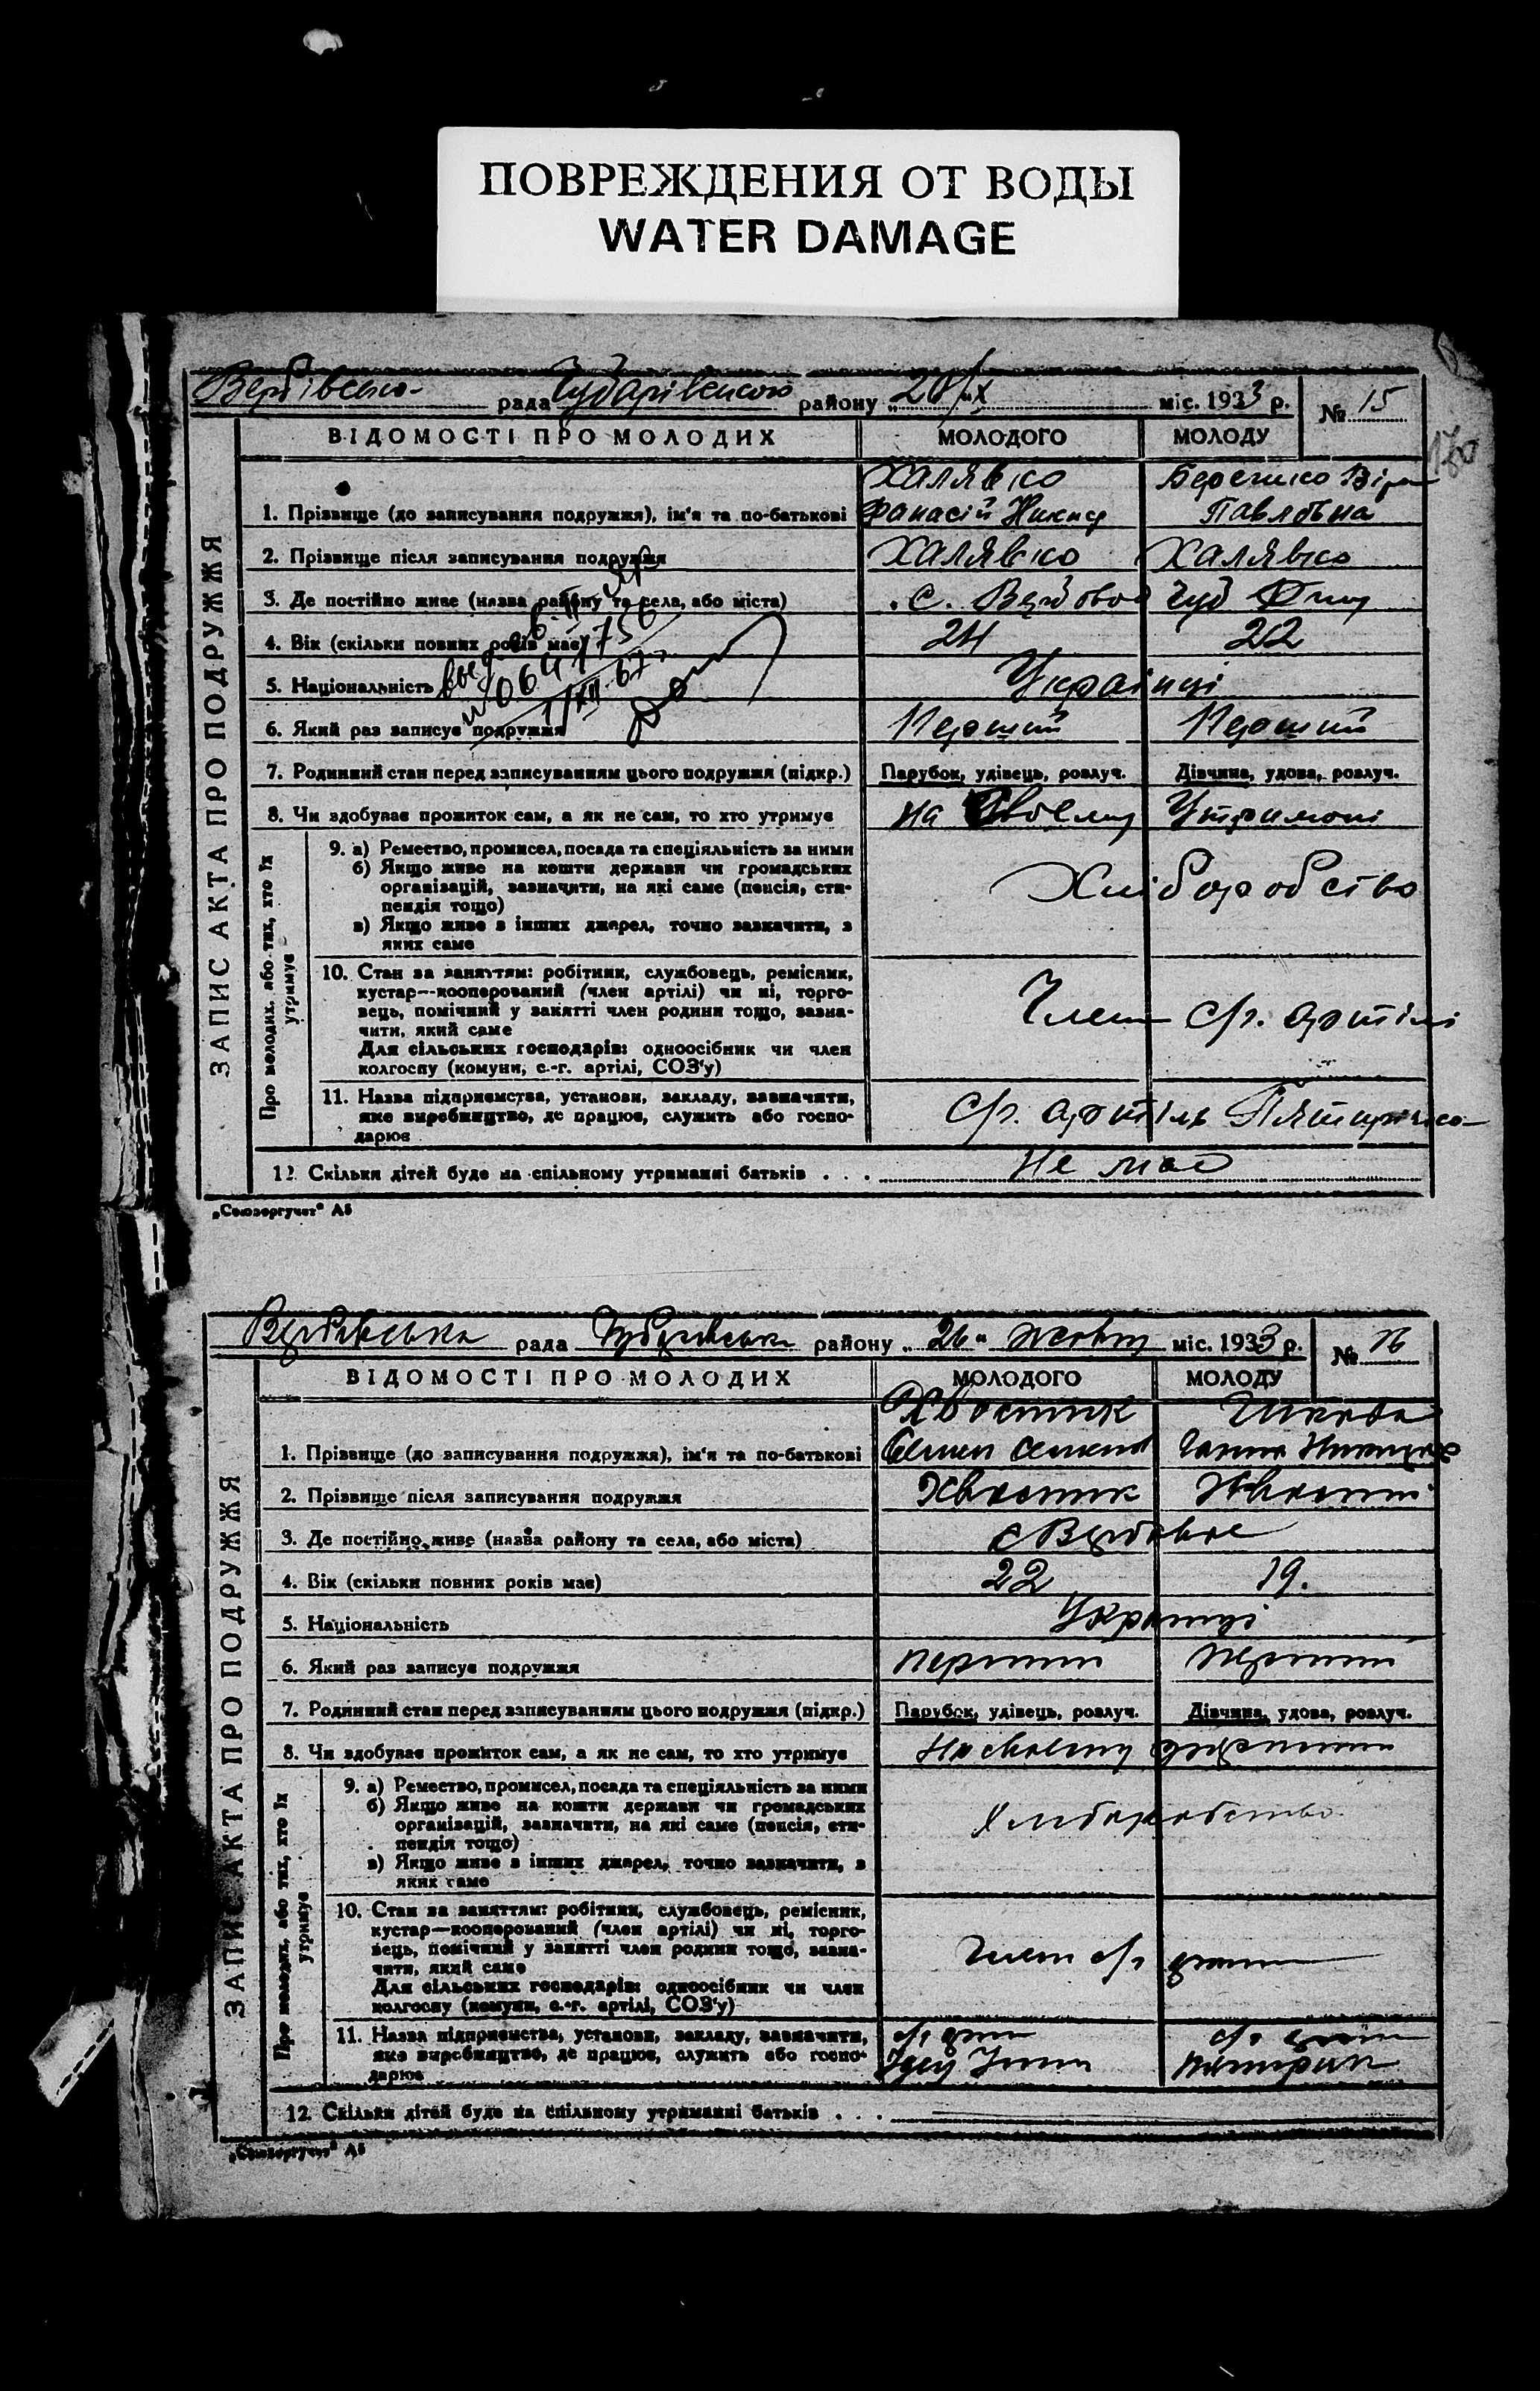 ПОВРЕЖДЕНИЯ ОТ ВОДЫ
WATER DAMAGE
рада району „ 20/X міс. 1933 р. № 15
180
ВІДОМОСТІ ПРО МОЛОДИХ МОЛОДОГО МОЛОДУ
ЗАПИС АКТА ПРО ПОДРУЖЖЯ
Халявко
1. Прізвище (до записування подружжя), ім'я та по-батькові Фанасій Павлівна
2. Прізвище після записування подружжя Халявко Халявко
3. Де постійно живе (назва району та села, або міста) с.
4. Вік (скільки повних років має) 24 22
5. Національність Українці
6. Який раз записує подружжя Перший Перший
7. Родинний стан перед записуванням цього подружжя (підкр.) Парубок, удівець, розлуч. Дівчина, удова, розлуч.
8. Чи здобуває прожиток сам, а як не сам, то хто утримує на своєму
Про молодих, або тих, хто їх утримує
9. а) Ремество, промисел, посада та спеціяльність за ними
б) Якщо живе на кошти держави чи громадських
організацій, зазначити, на які саме (пенсія, сти-
пендія тощо)
в) Якщо живе з інших джерел, точно зазначити, з
яких саме
Хліборобство
10. Стан за заняттям: робітник, службовець, ремісник,
кустар—кооперований (член артілі) чи ні, торго-
вець, помічний у занятті член родини тощо, зазна-
чити, який саме
Для сільських господарів: одноосібник чи член
колгоспу (комуни, с.-г. артілі, СОЗ'у)
Член с/г. артілі
11. Назва підприємства, установи, закладу, зазначити,
яке виробництво, де працює, служить або госпо-
дарює
с/г. артіль
12. Скільки дітей буде на спільному утриманні батьків . . . не має
„Союзоргучет“ А5
Вербівська рада району „ 26 “ міс. 1933 р. № 16
ВІДОМОСТІ ПРО МОЛОДИХ МОЛОДОГО МОЛОДУ
ЗАПИС АКТА ПРО ПОДРУЖЖЯ
Хвостик
1. Прізвище (до записування подружжя), ім'я та по-батькові
2. Прізвище після записування подружжя Хвостик
3. Де постійно живе (назва району та села, або міста) с
4. Вік (скільки повних років має) 22 19.
5. Національність Українці
6. Який раз записує подружжя перший перший
7. Родинний стан перед записуванням цього подружжя (підкр.) Парубок, удівець, розлуч. Дівчина, удова, розлуч.
8. Чи здобуває прожиток сам, а як не сам, то хто утримує На своєму
Про молодих, або тих, хто їх утримує
9. а) Ремество, промисел, посада та спеціяльність за ними
б) Якщо живе на кошти держави чи громадських
організацій, зазначити, на які саме (пенсія, сти-
пендія тощо)
в) Якщо живе з інших джерел, точно зазначити, з
яких саме
Хліборобство
10. Стан за заняттям: робітник, службовець, ремісник,
кустар—кооперований (член артілі) чи ні, торго-
вець, помічний у занятті член родини тощо, зазна-
чити, який саме
Для сільських господарів: одноосібник чи член
колгоспу (комуни, с.-г. артілі, СОЗ'у)
Член с/г
11. Назва підприємства, установи, закладу, зазначити,
яке виробництво, де працює, служить або госпо-
дарює
12. Скільки дітей буде на спільному утриманні батьків . . .
„Союзоргучет“ А5